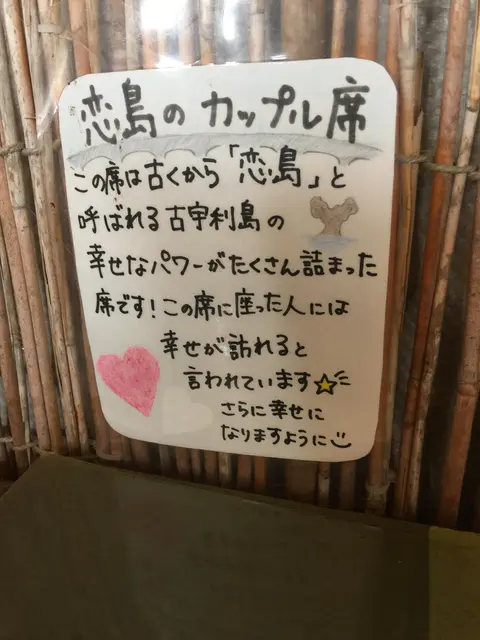 恋島のカップル席
この席は古くから「恋島」と
呼ばれる古宇利島の
幸せなパワーがたくさん詰まった
席です!この席に座った人には
幸せが訪れると
言われています☆
さらに幸せに
なりますように